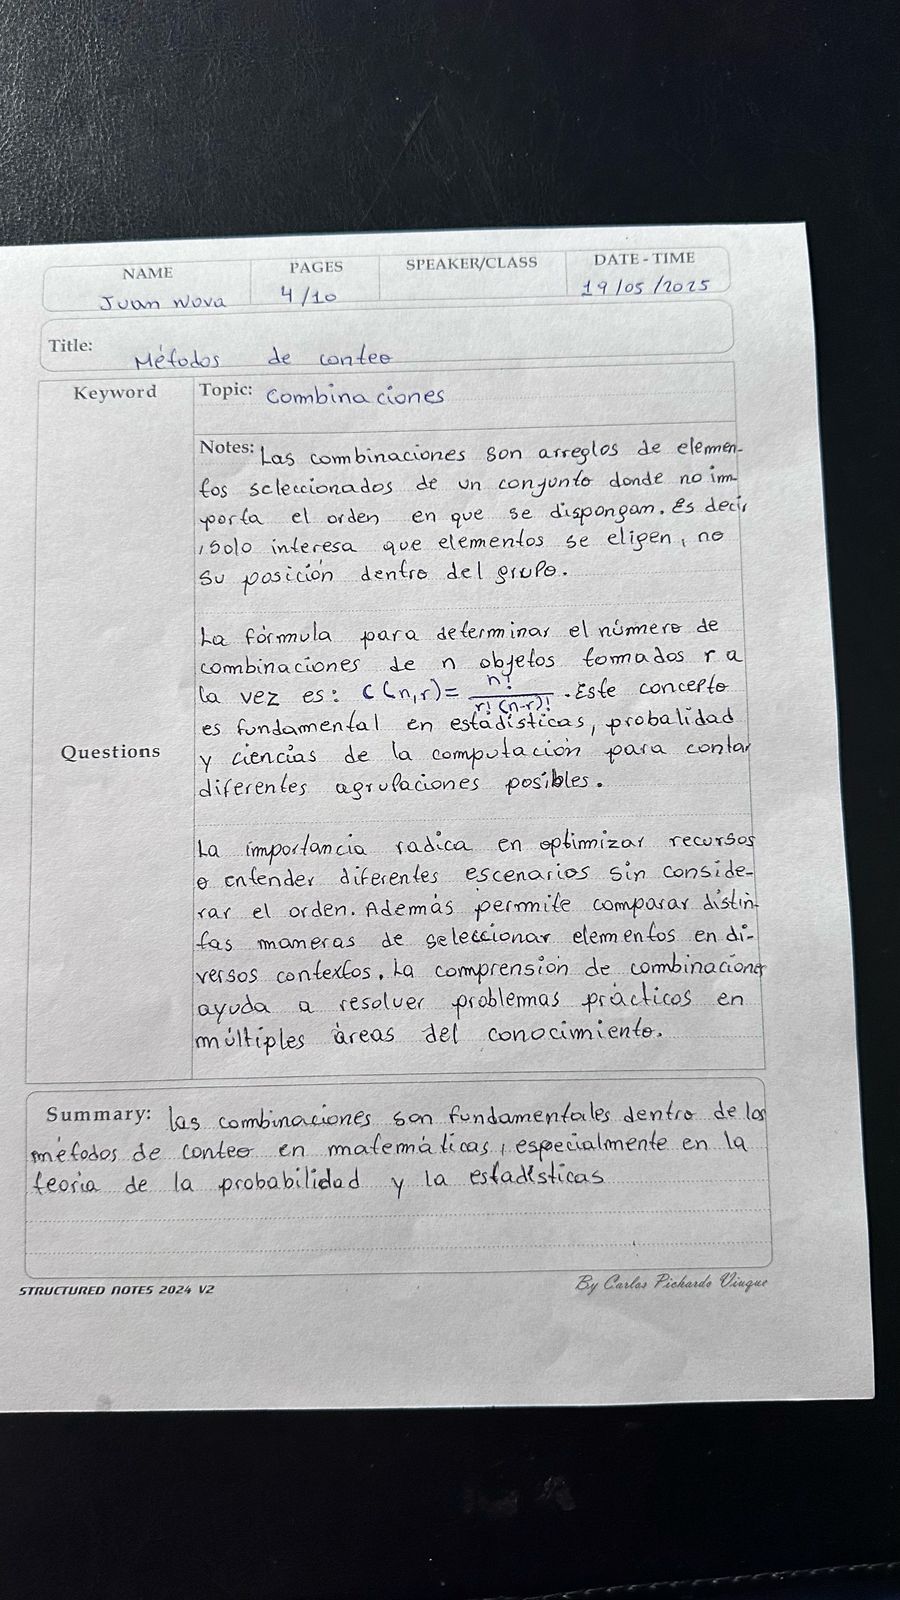 NAME PAGES SPEAKER/CLASS DATE - TIME
Juan Nova 4/10 19/05/2025
Title: Métodos de conteo
Keyword Topic: Combinaciones
Notes: Las combinaciones son arreglos de elemen-
tos seleccionados de un conjunto donde no im-
porta el orden en que se dispongan. Es decir
, solo interesa que elementos se eligen, no
su posición dentro del grupo.
La fórmula para determinar el número de
combinaciones de n objetos tomados r a
la vez es: C(n,r)= n!/r!(n-r)! . Este concepto
es fundamental en estadísticas, probalidad
Questions
y ciencias de la computación para contar
diferentes agrupaciones posibles.
La importancia radica en optimizar recursos
o entender diferentes escenarios sin conside-
rar el orden. Además permite comparar distin-
tas maneras de seleccionar elementos en di-
versos contextos. La comprensión de combinaciones
ayuda a resolver problemas prácticos en
múltiples áreas del conocimiento.
Summary: las combinaciones son fundamentales dentro de los
métodos de conteo en matemáticas, especialmente en la
teoría de la probabilidad y la estadísticas
STRUCTURED NOTES 2024 V2 By Carlos Pichardo Viuque